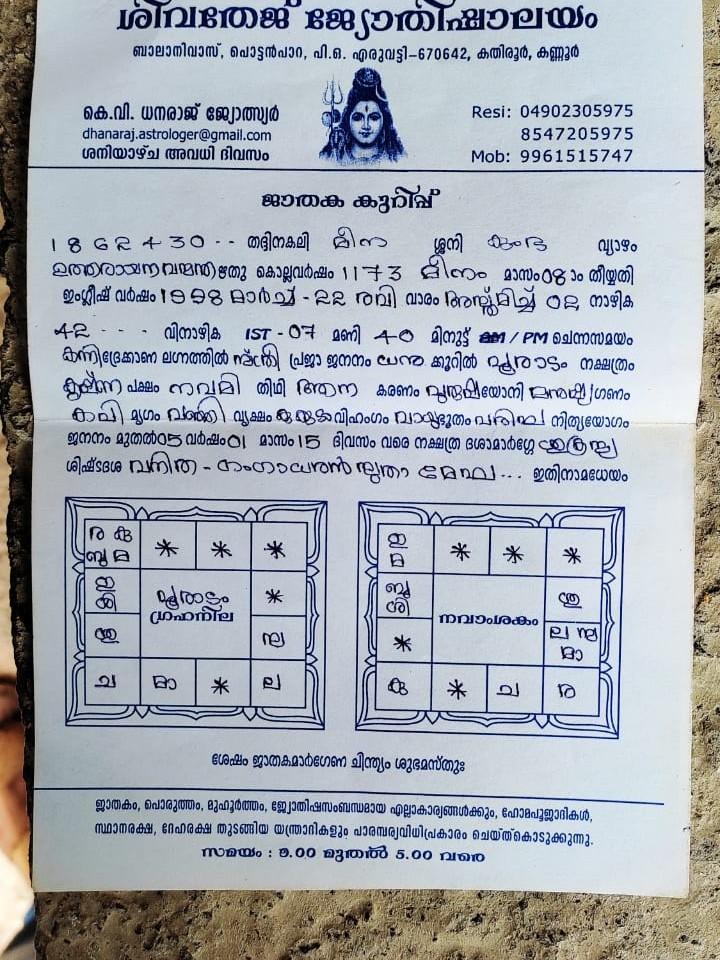 ശിവതേജ് ജ്യോതിഷാലയം
ബാലാനിവാസ്, പൊട്ടൻപാറ, പി.ഒ. എരുവട്ടി-670642, കതിരൂർ, കണ്ണൂർ
കെ.വി. ധനരാജ് ജ്യോത്സ്യർ
dhanaraj.astrologer@gmail.com
ശനിയാഴ്ച അവധി ദിവസം
Resi: 04902305975
8547205975
Mob: 9961515747
ജാതക കുറിപ്പ്
1862430 -- തദ്ദിനകലി മീന ശ്ശനി കുംഭ വ്യാഴം
ഉത്തരായന വസന്ത ഋതു കൊല്ലവർഷം 1173 മീനം മാസം 08 ാം തീയ്യതി
ഇംഗ്ലീഷ് വർഷം 1998 മാർച്ച് -22 രവി വാരം അസ്തമിച്ച് 02 നാഴിക
42 - - - - വിനാഴിക IST - 07 മണി 40 മിനുട്ട് AM / PM ചെന്നസമയം
കന്നി ദ്രേക്കാണ ലഗ്നത്തിൽ സ്ത്രീ പ്രജാ ജനനം ധനു കൂറിൽ പൂരാടം നക്ഷത്രം
കൃഷ്ണ പക്ഷം നവമി തിഥി ആന കരണം പുരുഷ യോനി മനുഷ്യ ഗണം
കപി മൃഗം വഞ്ഞി വൃക്ഷം വിഹംഗം വായു ഭൂതം പരിഘ നിത്യയോഗം
ജനനം മുതൽ 05 വർഷം 01 മാസം 15 ദിവസം വരെ നക്ഷത്ര ദശാമാർഗ്ഗേ ശുക്ര
ശിഷ്ടദശ വനിത - ഗംഗാധരൻ സുതാ മേഘ ... ഇതിനാമധേയം
ര കു ✳ ✳ ✳
ബു മ
വ്യ ശി പൂരാടം ✳
ഗ്രഹനില
ശു സ
ച മാ ✳ ല
വ്യ മ ✳ ✳ ✳
ബു ശി നവാംശകം ശു
✳ ല സ മാ
കു ✳ ച ര
ശേഷം ജാതകമാർഗേണ ചിന്ത്യം ശുഭമസ്തുഃ
ജാതകം, പൊരുത്തം, മുഹൂർത്തം, ജ്യോതിഷസംബന്ധമായ എല്ലാകാര്യങ്ങൾക്കും, ഹോമപൂജാദികൾ,
സ്ഥാനരക്ഷ, ദേഹരക്ഷ തുടങ്ങിയ യന്ത്രാദികളും പാരമ്പര്യവിധിപ്രകാരം ചെയ്ത്കൊടുക്കുന്നു.
സമയം : 9.00 മുതൽ 5.00 വരെ